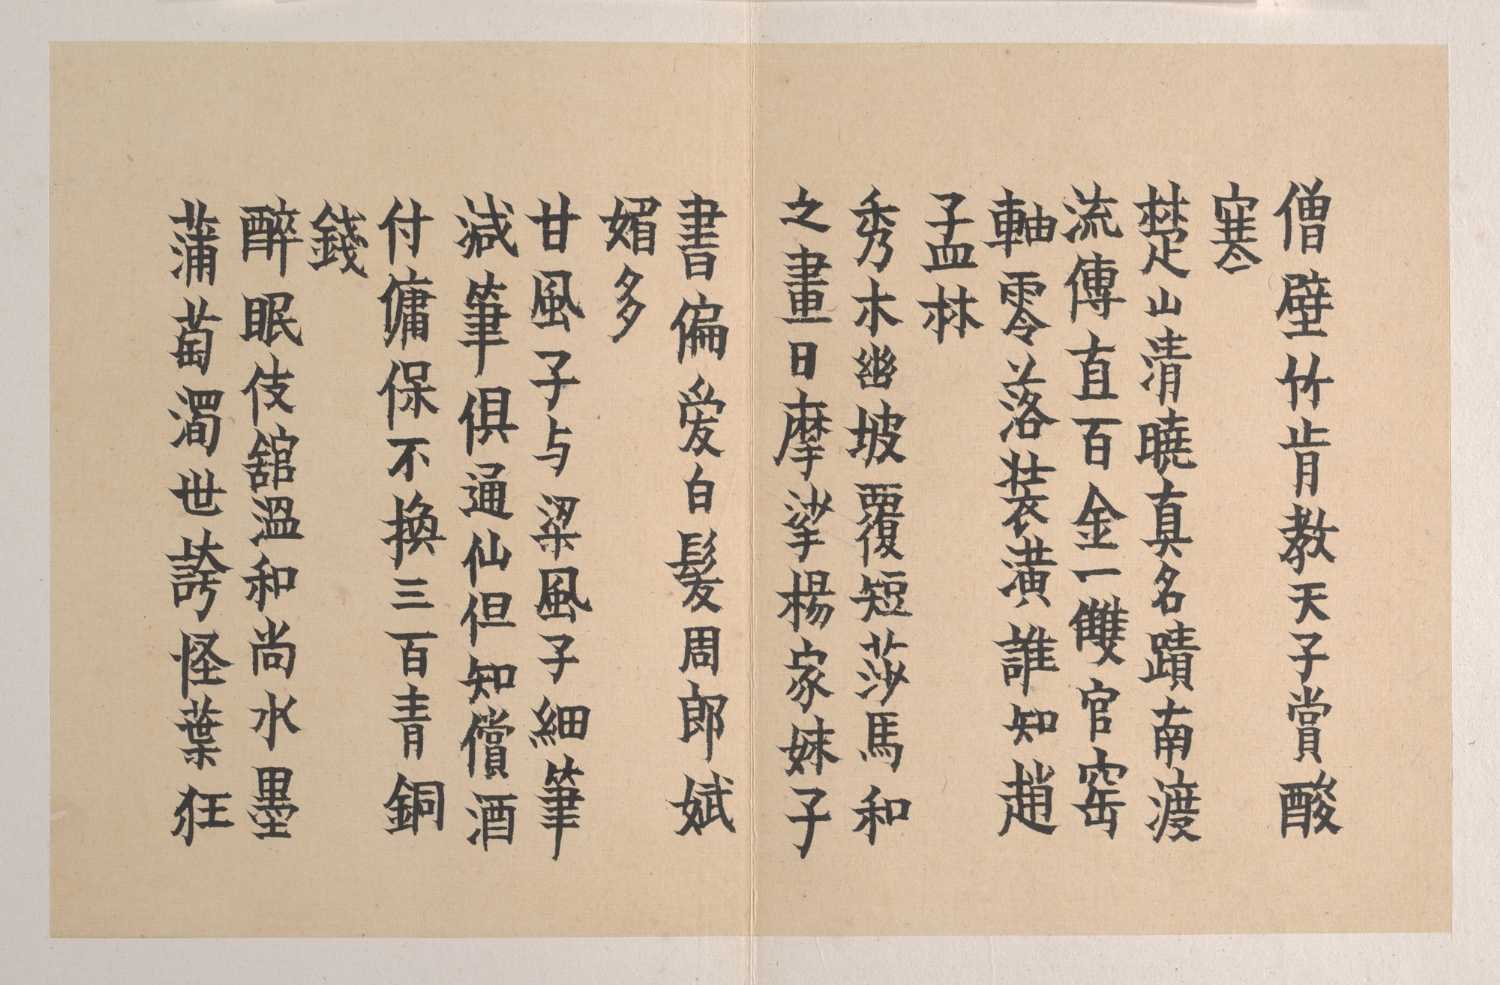 僧壁竹肯教天子賞酸
寒
楚山清曉真名蹟南渡
流傳直百金一雙官窑
軸零落裝潢誰知趙
孟林
秀木幽坡覆短莎馬和
之畫日摩挲楊家妹子
書偏愛白髮周郎斌
媚多
甘風子与梁風子細筆
減筆俱通仙但知償酒
付傭保不換三百青銅
錢
醉眠伎館溫和尚水墨
蒲萄濁世誇怪葉狂